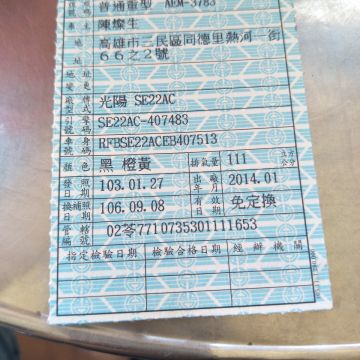 普通重型 AEM-3783
車主 陳燦生
地址 高雄市三民區同德里熱河一街
66之2號
地址變更
廠牌型式 光陽 SE22AC
引擎號碼 SE22AC-407483
車身號碼 RFBSE22ACEB407513
顏色 黑 橙黃 排氣量 111 立方公分
發照日期 103.01.27 出廠年月 2014.01
換補照日期 106.09.08 有效日期 免定換
管轄編號 02苓7710735301111653
指定檢驗日期 檢驗合格日期 經辦機關